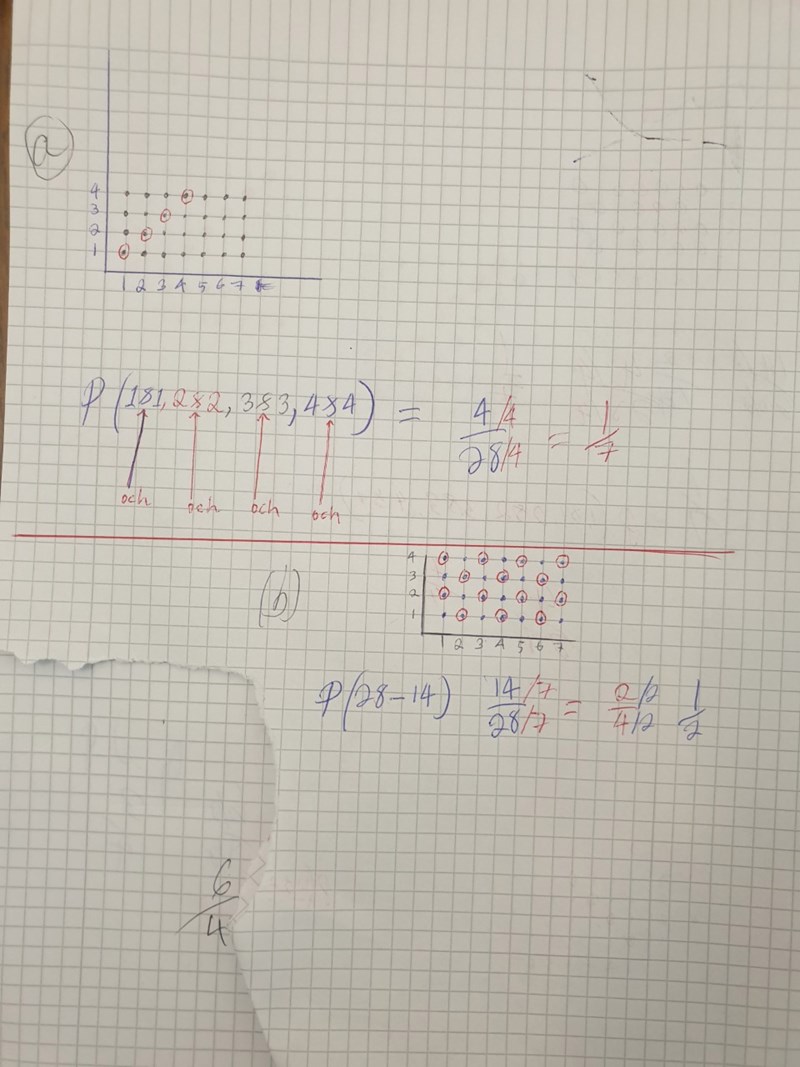 a
4
3
2
1
1 2 3 4 5 6 7
P(1&1, 2&2, 3&3, 4&4) = 4/4 / 28/4 = 1/7
och och och och
(b)
4
3
2
1
1 2 3 4 5 6 7
P(28-14) 14/7 / 28/7 = 2/2 / 4/2 1/2
6/4